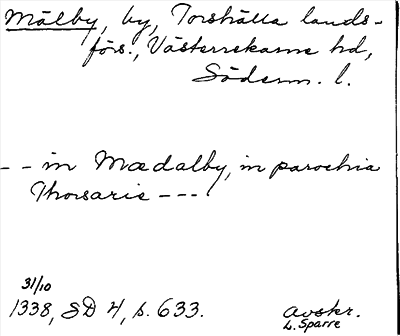 Mälby, by, Torshälla lands-
förs., Västerrekarne hd,
Söderm. l.
-- in Mædalby, in parochia
Thorsaris ---
31/10
1338, SD 4, s. 633.
avskr.
L. Sparre